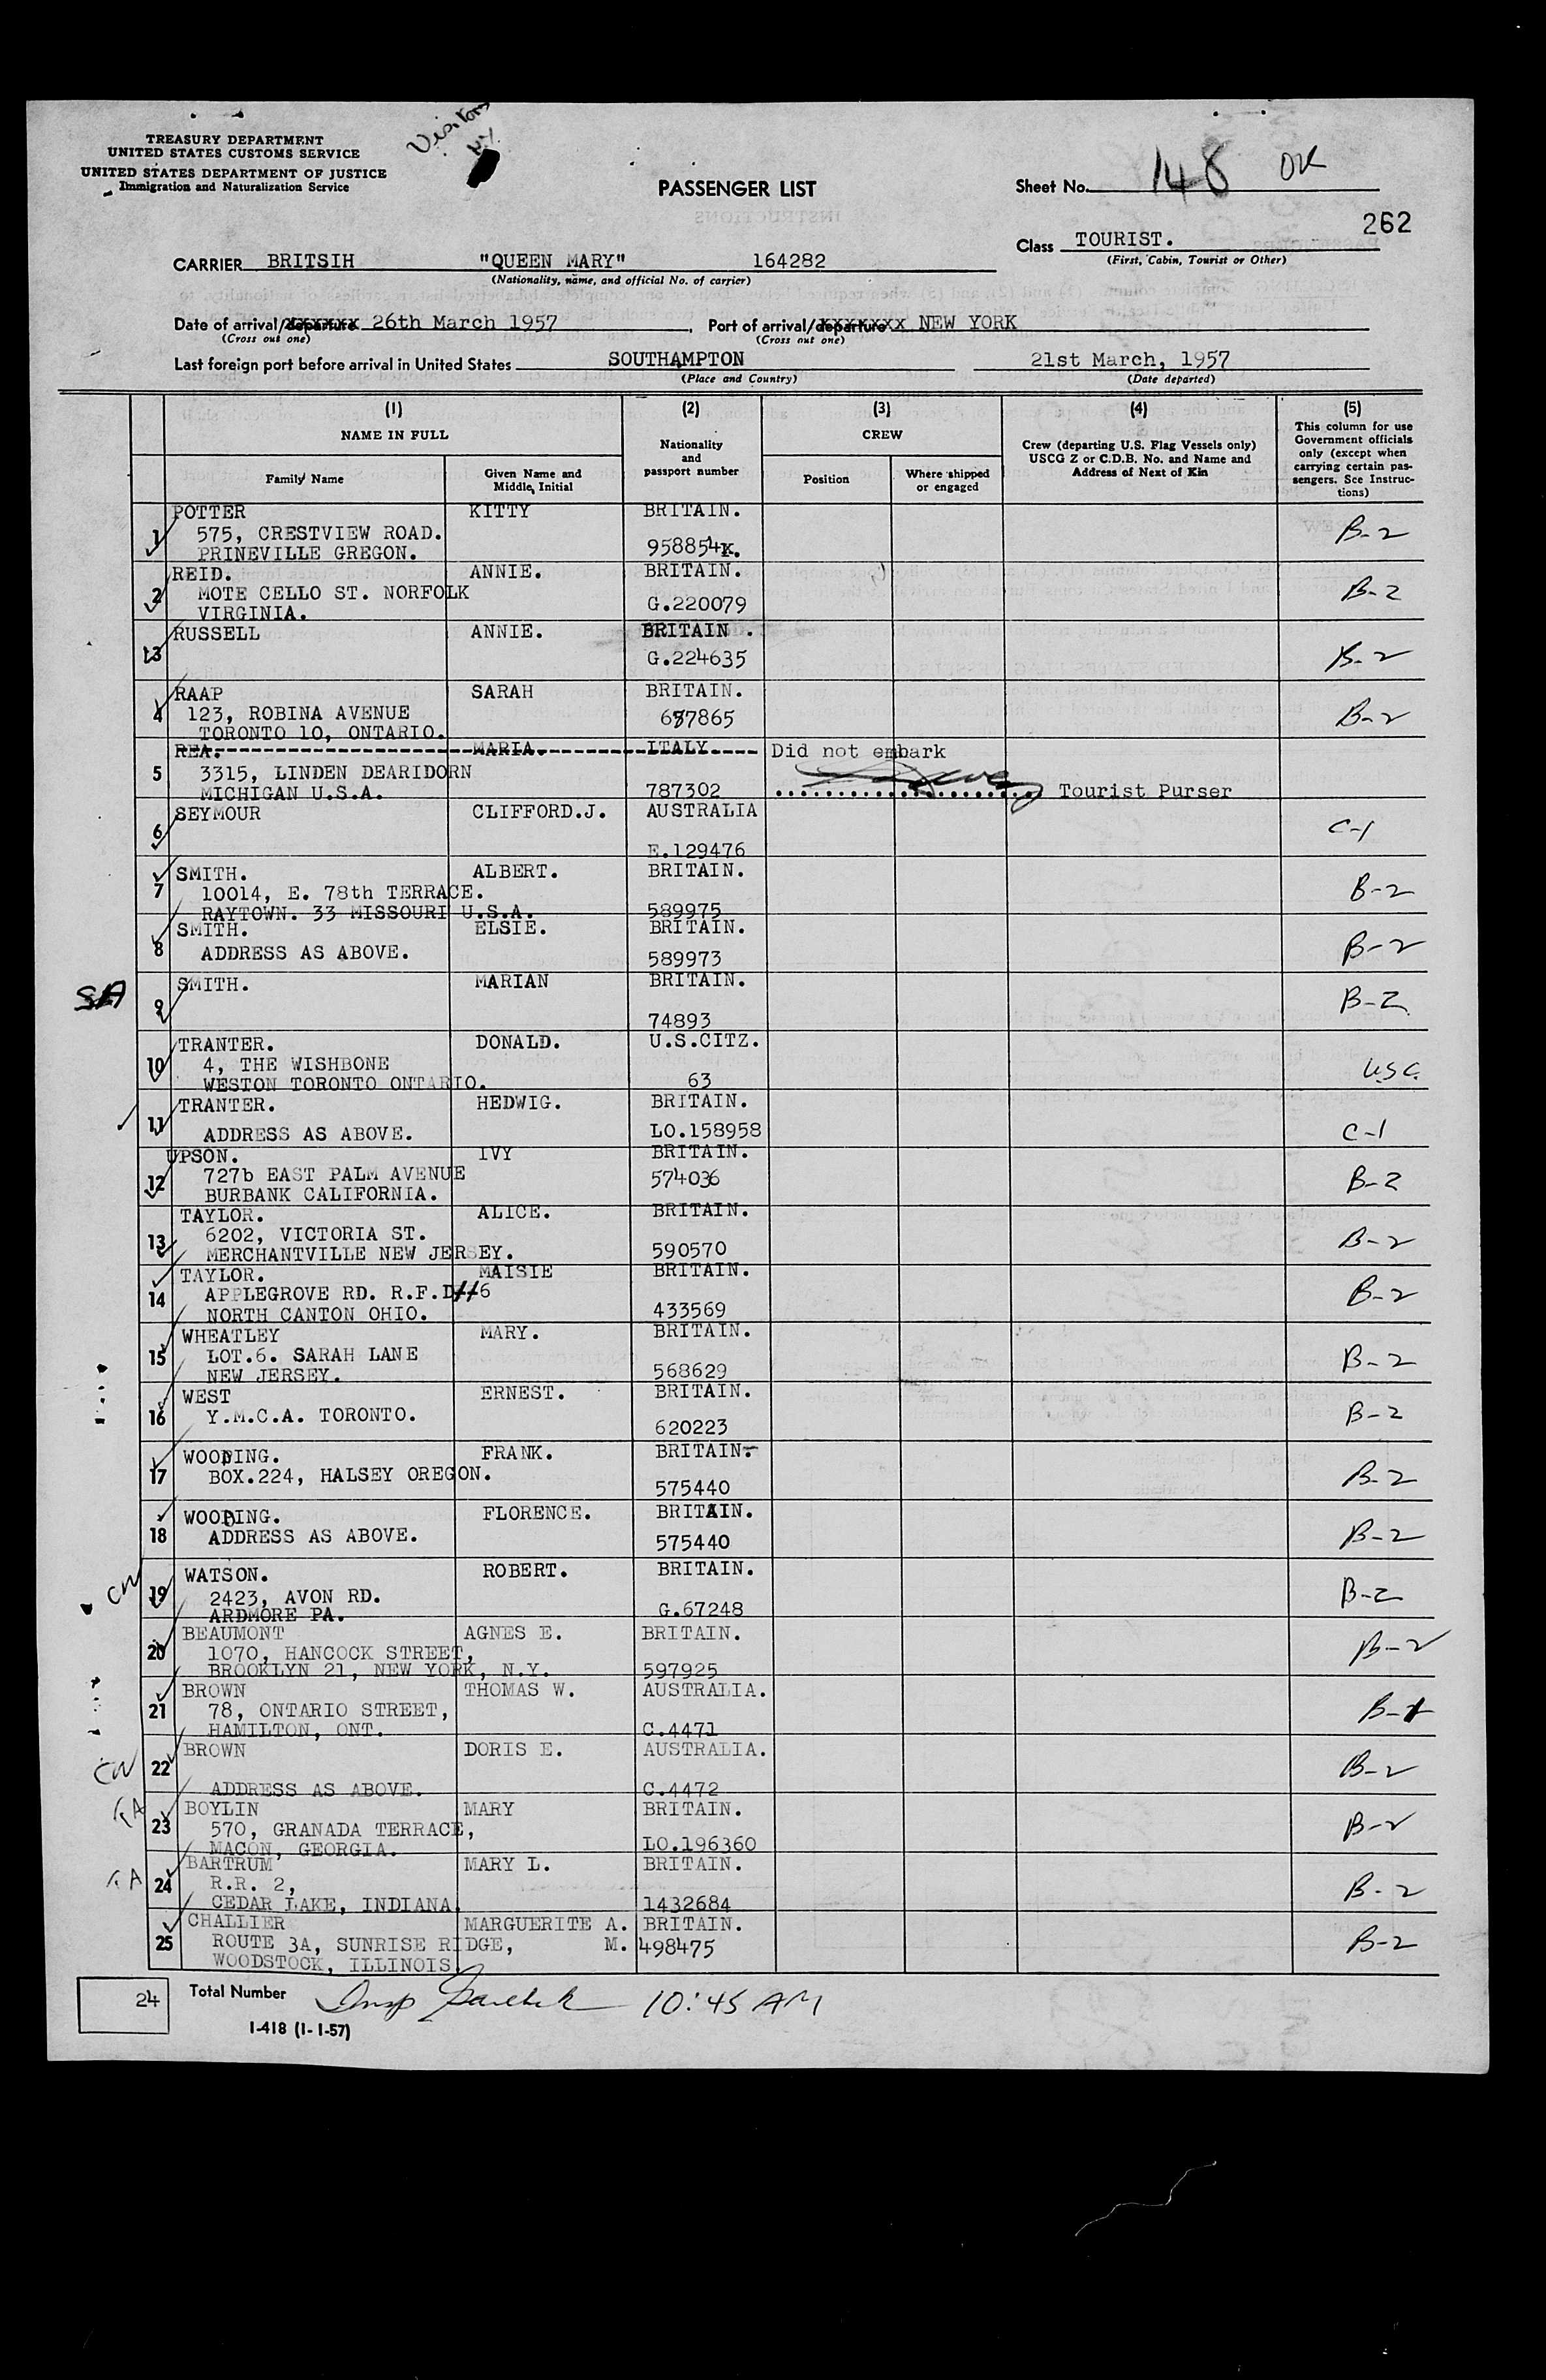 TREASURY DEPARTMENT
UNITED STATES CUSTOMS SERVICE
UNITED STATES DEPARTMENT OF JUSTICE
Immigration and Naturalization Service
Visitors
PASSENGER LIST
Sheet No. 148 OK
262
Class TOURIST.
(First, Cabin, Tourist or Other)
CARRIER BRITSIH "QUEEN MARY" 164282
(Nationality, name, and official No. of carrier)
Date of arrival/departure 26th March 1957, Port of arrival/departure NEW YORK
(Cross out one) (Cross out one)
Last foreign port before arrival in United States SOUTHAMPTON 21st March, 1957
(Place and Country) (Date departed)
(1) (2) (3) (4) (5)
NAME IN FULL
Nationality and passport number
CREW
Crew (departing U.S. Flag Vessels only) USCG Z or C.D.B. No. and Name and Address of Next of Kin
This column for use Government officials only (except when carrying certain passengers. See Instructions)
Family Name Given Name and Middle Initial Position Where shipped or engaged
1 POTTER KITTY BRITAIN. B-2
575, CRESTVIEW ROAD.
PRINEVILLE GREGON. 958854K.
2 REID. ANNIE. BRITAIN. B-2
MOTE CELLO ST. NORFOLK
VIRGINIA. G.220079
3 RUSSELL ANNIE. BRITAIN . B-2
G.224635
4 RAAP SARAH BRITAIN. B-2
123, ROBINA AVENUE 687865
TORONTO 10, ONTARIO.
5 REA. MARIA. ITALY Did not embark
3315, LINDEN DEARIDORN
MICHIGAN U.S.A. 787302 Tourist Purser
6 SEYMOUR CLIFFORD.J. AUSTRALIA C-1
E.129476
7 SMITH. ALBERT. BRITAIN. B-2
10014, E. 78th TERRACE.
RAYTOWN. 33 MISSOURI U.S.A. 589975
8 SMITH. ELSIE. BRITAIN. B-2
ADDRESS AS ABOVE. 589973
SA 9 SMITH. MARIAN BRITAIN. B-2
74893
10 TRANTER. DONALD. U.S.CITZ. U.S.C.
4, THE WISHBONE
WESTON TORONTO ONTARIO. 63
11 TRANTER. HEDWIG. BRITAIN. C-1
ADDRESS AS ABOVE. LO.158958
12 UPSON. IVY BRITAIN. B-2
727b EAST PALM AVENUE 574036
BURBANK CALIFORNIA.
13 TAYLOR. ALICE. BRITAIN. B-2
6202, VICTORIA ST.
MERCHANTVILLE NEW JERSEY. 590570
14 TAYLOR. MAISIE BRITAIN. B-2
APPLEGROVE RD. R.F.D#6
NORTH CANTON OHIO. 433569
15 WHEATLEY MARY. BRITAIN. B-2
LOT.6. SARAH LANE
NEW JERSEY. 568629
16 WEST ERNEST. BRITAIN. B-2
Y.M.C.A. TORONTO. 620223
17 WOODING. FRANK. BRITAIN. B-2
BOX.224, HALSEY OREGON. 575440
18 WOODING. FLORENCE. BRITAIN. B-2
ADDRESS AS ABOVE. 575440
CW 19 WATSON. ROBERT. BRITAIN. B-2
2423, AVON RD.
ARDMORE PA. G.67248
20 BEAUMONT AGNES E. BRITAIN. B-2
1070, HANCOCK STREET,
BROOKLYN 21, NEW YORK, N.Y. 597925
21 BROWN THOMAS W. AUSTRALIA. B-1
78, ONTARIO STREET,
HAMILTON, ONT. C.4471
CW 22 BROWN DORIS E. AUSTRALIA. B-2
ADDRESS AS ABOVE. C.4472
23 BOYLIN MARY BRITAIN. B-2
570, GRANADA TERRACE,
MACON, GEORGIA. LO.196360
24 BARTRUM MARY L. BRITAIN. B-2
R.R. 2,
CEDAR LAKE, INDIANA. 1432684
25 CHALLIER MARGUERITE A. BRITAIN. B-2
ROUTE 3A, SUNRISE RIDGE, M. 498475
WOODSTOCK, ILLINOIS.
24 Total Number Insp 10:45 AM
I-418 (1-1-57)